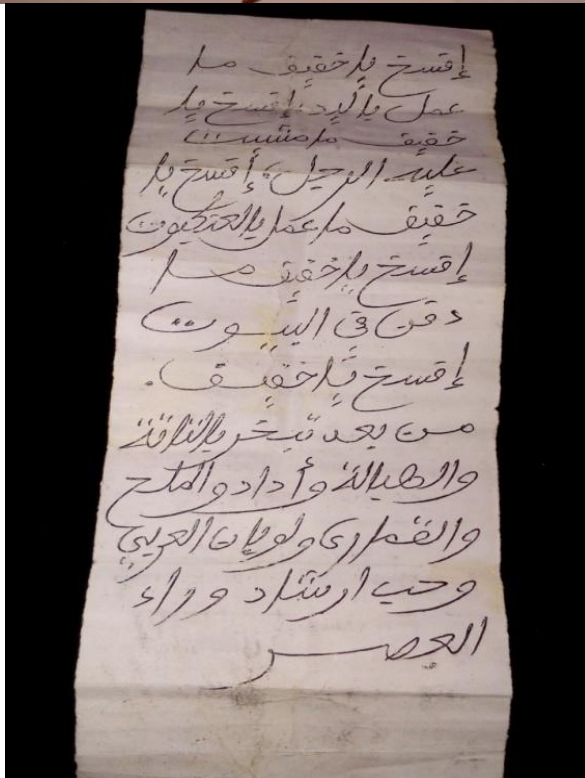 إفسخ يا خفيف ما
عمل باليد، إفسخ يا
خفيف ما مشيت
عليه الرجيل، أفسخ يا
خفيف ما عمل بالعنكبوت
إفسخ يا خفيف ما
دفن في البيوت
إفسخ يا خفيف.
من بعد تبخر بالنافة
والطيالة وأداد والملح
والقماري ولوبان العربي
وحب ارشاد وراء
العصر